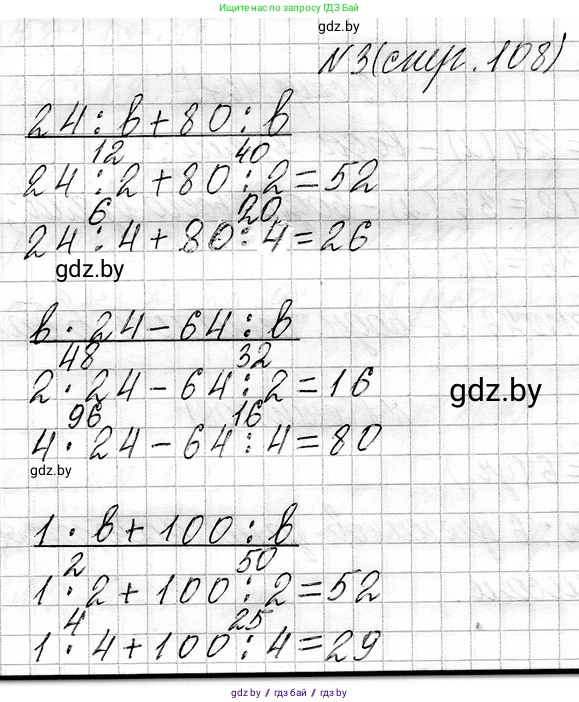 Ищите нас по запросу ГДЗ Бай
gdz.by
N3(стр. 108)
24 : в + 80 : в
12 40
24 : 2 + 80 : 2 = 52
6 20
24 : 4 + 80 : 4 = 26
gdz.by
в · 24 - 64 : в
48 32
2 · 24 - 64 : 2 = 16
gdz.by
96 16
4 · 24 - 64 : 4 = 80
gdz.by
1 · в + 100 : в
2 50
1 · 2 + 100 : 2 = 52
4 25
1 · 4 + 100 : 4 = 29
gdz.by / гдз бай / gdz.by